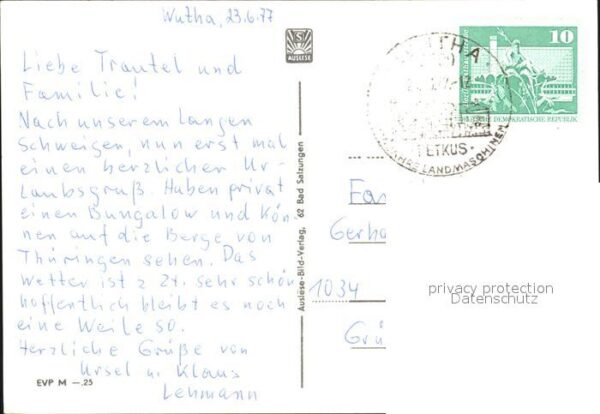 Wutha, 23.6.77
Liebe Trautel und
Familie!
Nach unserem langen
Schweigen, nun erst mal
einen herzlicher Ur-
laubsgruß. Haben privat
einen Bungalow und kön-
nen auf die Berge von
Thüringen sehen. Das
Wetter ist z Zt. sehr schön
hoffentlich bleibt es noch
eine Weile so.
Herzliche Grüße von
Ursel u. Klaus
Lehmann
EVP M —.25
AUSLESE
Auslese-Bild-Verlag, 62 Bad Salzungen
10
DEMOKRATISCHE REPUBLIK
WUTHA
PETKUS
LANDMASCHINEN
Fa
Gerha
1034
Grü
privacy protection
Datenschutz